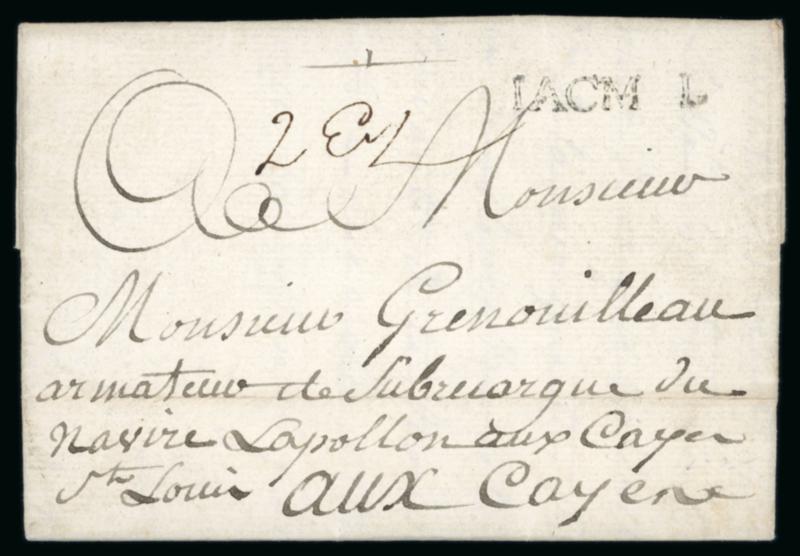 IACM L
2 E
A Monsieur
Monsieur Grenouilleau
armateur de Subrecargue du
navire Lapollon aux Cayes
St Louis aux Cayes